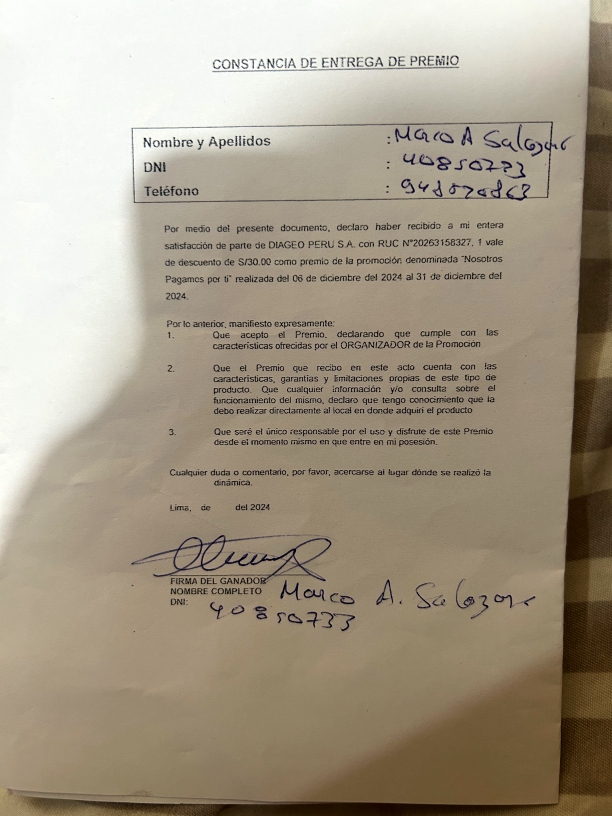 CONSTANCIA DE ENTREGA DE PREMIO
Nombre y Apellidos : Marco A Salazar
DNI : 40850733
Teléfono : 948520863
Por medio del presente documento, declaro haber recibido a mi entera
satisfacción de parte de DIAGEO PERU S.A. con RUC N°20263158327, 1 vale
de descuento de S/30.00 como premio de la promoción denominada "Nosotros
Pagamos por ti" realizada del 06 de diciembre del 2024 al 31 de diciembre del
2024.
Por lo anterior, manifiesto expresamente:
1. Que acepto el Premio, declarando que cumple con las
características ofrecidas por el ORGANIZADOR de la Promoción
2. Que el Premio que recibo en este acto cuenta con las
características, garantías y limitaciones propias de este tipo de
producto. Que cualquier información y/o consulta sobre el
funcionamiento del mismo, declaro que tengo conocimiento que la
debo realizar directamente al local en donde adquirí el producto
3. Que seré el único responsable por el uso y disfrute de este Premio
desde el momento mismo en que entre en mi posesión.
Cualquier duda o comentario, por favor, acercarse al lugar dónde se realizó la
dinámica.
Lima, de del 2024
FIRMA DEL GANADOR
NOMBRE COMPLETO Marco A. Salazar
DNI: 40850733